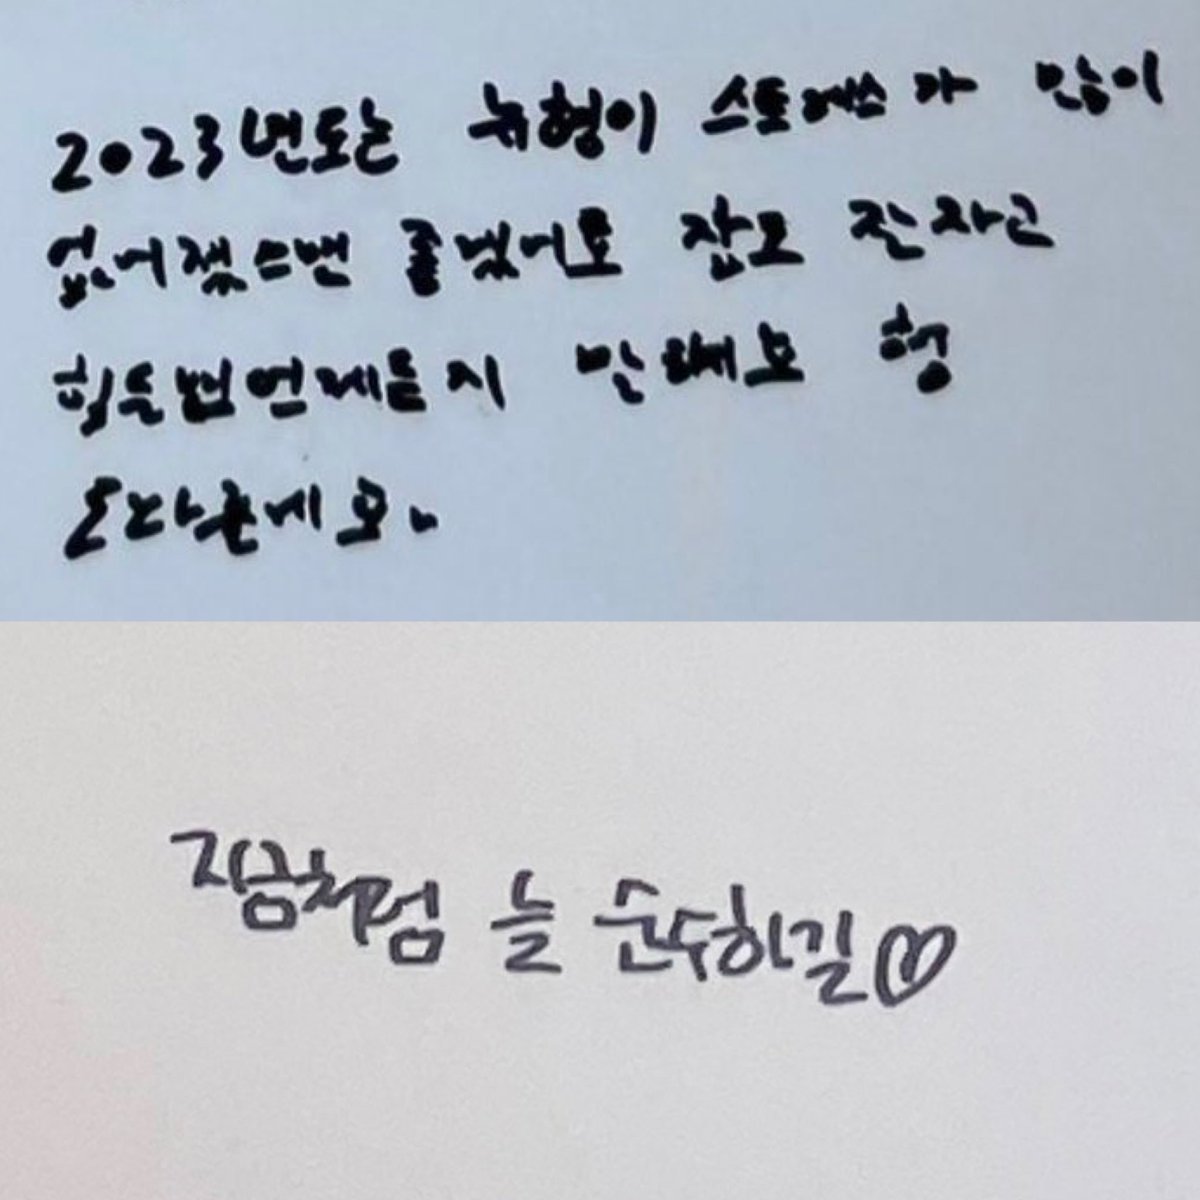 2023년도는 뉴형이 스트레스가 많이
없어졌스면 좋겠어요 잠모 잔자고
힘들면 언제든지 말해요 형
사란해요.
지금처럼 늘 순수하길♡